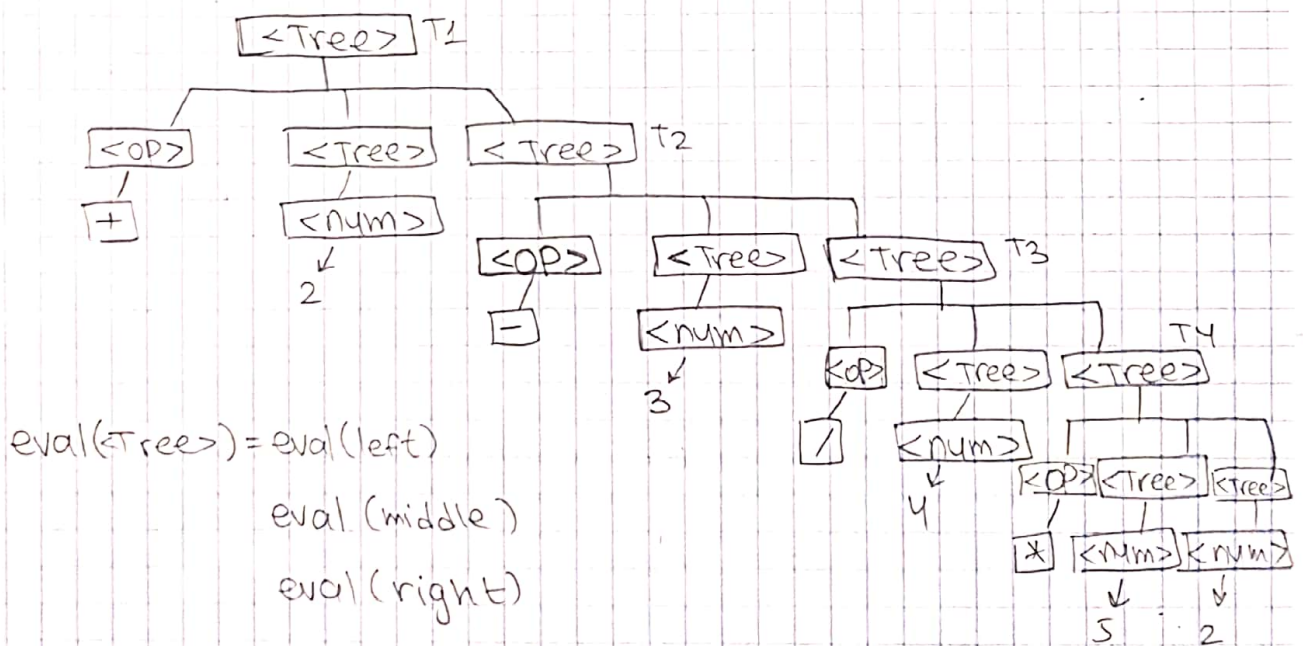 <Tree> T1
<OP> <Tree> <Tree> T2
+ <num>
2
<OP> <Tree> <Tree> T3
- <num>
3
<OP> <Tree> <Tree> T4
/ <num>
4
<OP> <Tree> <Tree>
* <num> <num>
5 2
eval(<Tree>) = eval(left)
eval (middle)
eval (right)